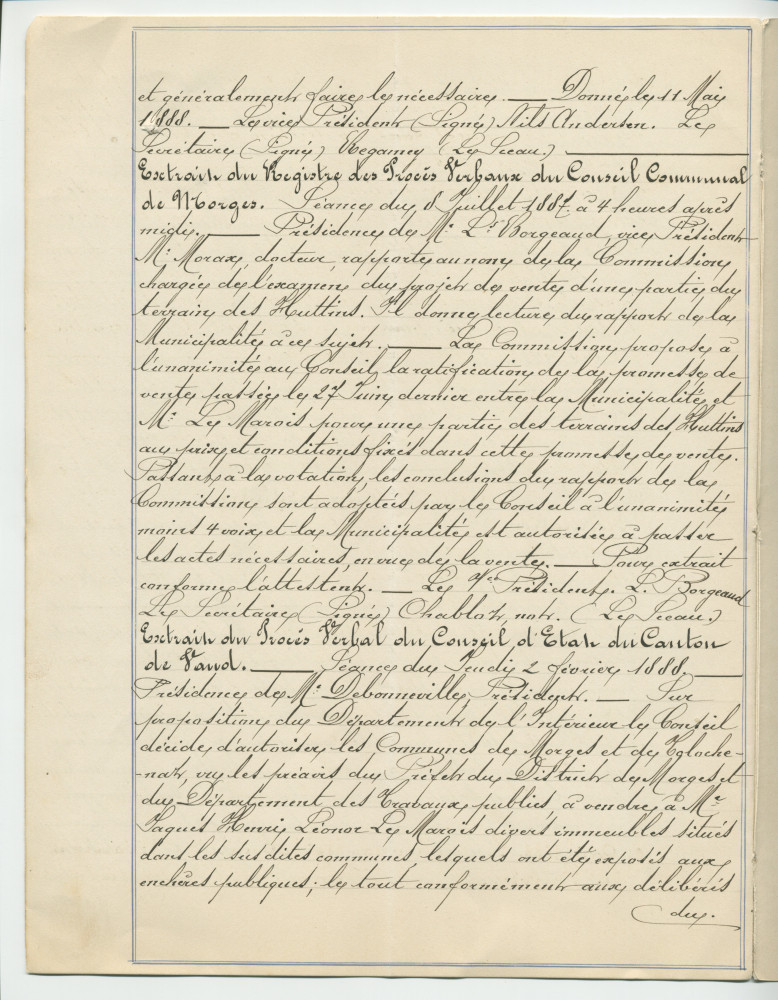 et généralement faire le nécessaire. — Donné le 11 Mai
1888. — Le vice Président (Signé) Nils Andersen. Le
Secrétaire (Signé) Megamey (Le Sceau.) —
Extrait du Registre des Procès Verbaux du Conseil Communal
de Morges. Séance du 8 Juillet 1887. à 4 heures après
midi. — Présidence de Mr. Ls. Borgeaud, vice Président
Mr. Morax, docteur, rapporte au nom de la Commission
chargée de l'examen du projet de vente d'une partie du
terrain des Huttins. Il donne lecture du rapport de la
Municipalité à ce sujet. — La Commission propose à
l'unanimité au Conseil la ratification de la promesse de
vente passée le 27 Juin dernier entre la Municipalité et
Mr. Le Marois pour une partie des terrains des Huttins
au prix et conditions fixés dans cette promesse de vente.
Passant à la votation, les conclusions du rapport de la
Commission sont adoptées par le Conseil à l'unanimité
moins 4 voix et la Municipalité est autorisée à passer
les actes nécessaires en vue de la vente. — Pour extrait
conforme l'attestent. — Le Vce Président. L. Borgeaud
Le Secrétaire (Signé) Chablot, not. (Le Sceau.)
Extrait du Procès Verbal du Conseil d'Etat du Canton
de Vaud. — Séance du Jeudi 2 février 1888. —
Présidence de Mr. Debonneville, Président. — Sur
proposition du Département de l'Intérieur le Conseil
décide d'autoriser les Communes de Morges et de Toloche-
-naz, vu les préavis du Préfet du District de Morges et
du Département des Travaux publics, à vendre à Mr.
Jaques Henri Léonor Le Marois divers immeubles situés
dans les susdites communes, lesquels ont été exposés aux
enchères publiques; le tout conformément aux délibérés
du.